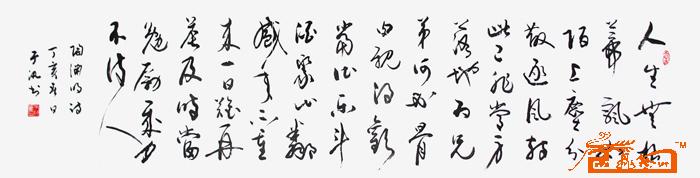 人生無根
蒂飄如
陌上塵分
散逐風轉
此已非常身
落地為兄
弟何必骨
肉親得歡
當作樂斗
酒聚比鄰
盛年不重
來一日難再
晨及時當
勉勵歲月
不待人
陶淵明詩
丁亥年